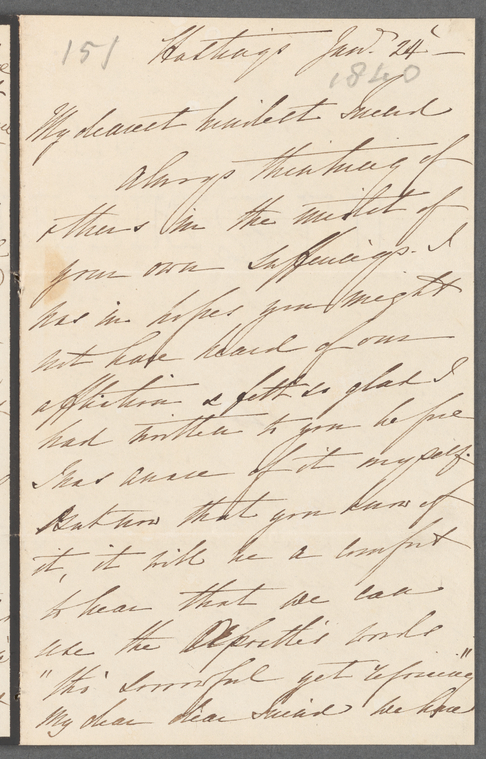 151
Hastings Jany. 24th —
1840
My dearest kindest Friend
always thinking of
others in the midst of
your own sufferings. I
was in hopes you might
not have heard of our
affliction & felt so glad I
had written to you before
I was aware of it myself.
But now that you know of
it, it will be a comfort
to hear that we can
use the Apostle's words
"tho' sorrowful yet rejoicing"
My dear dear Friend we have